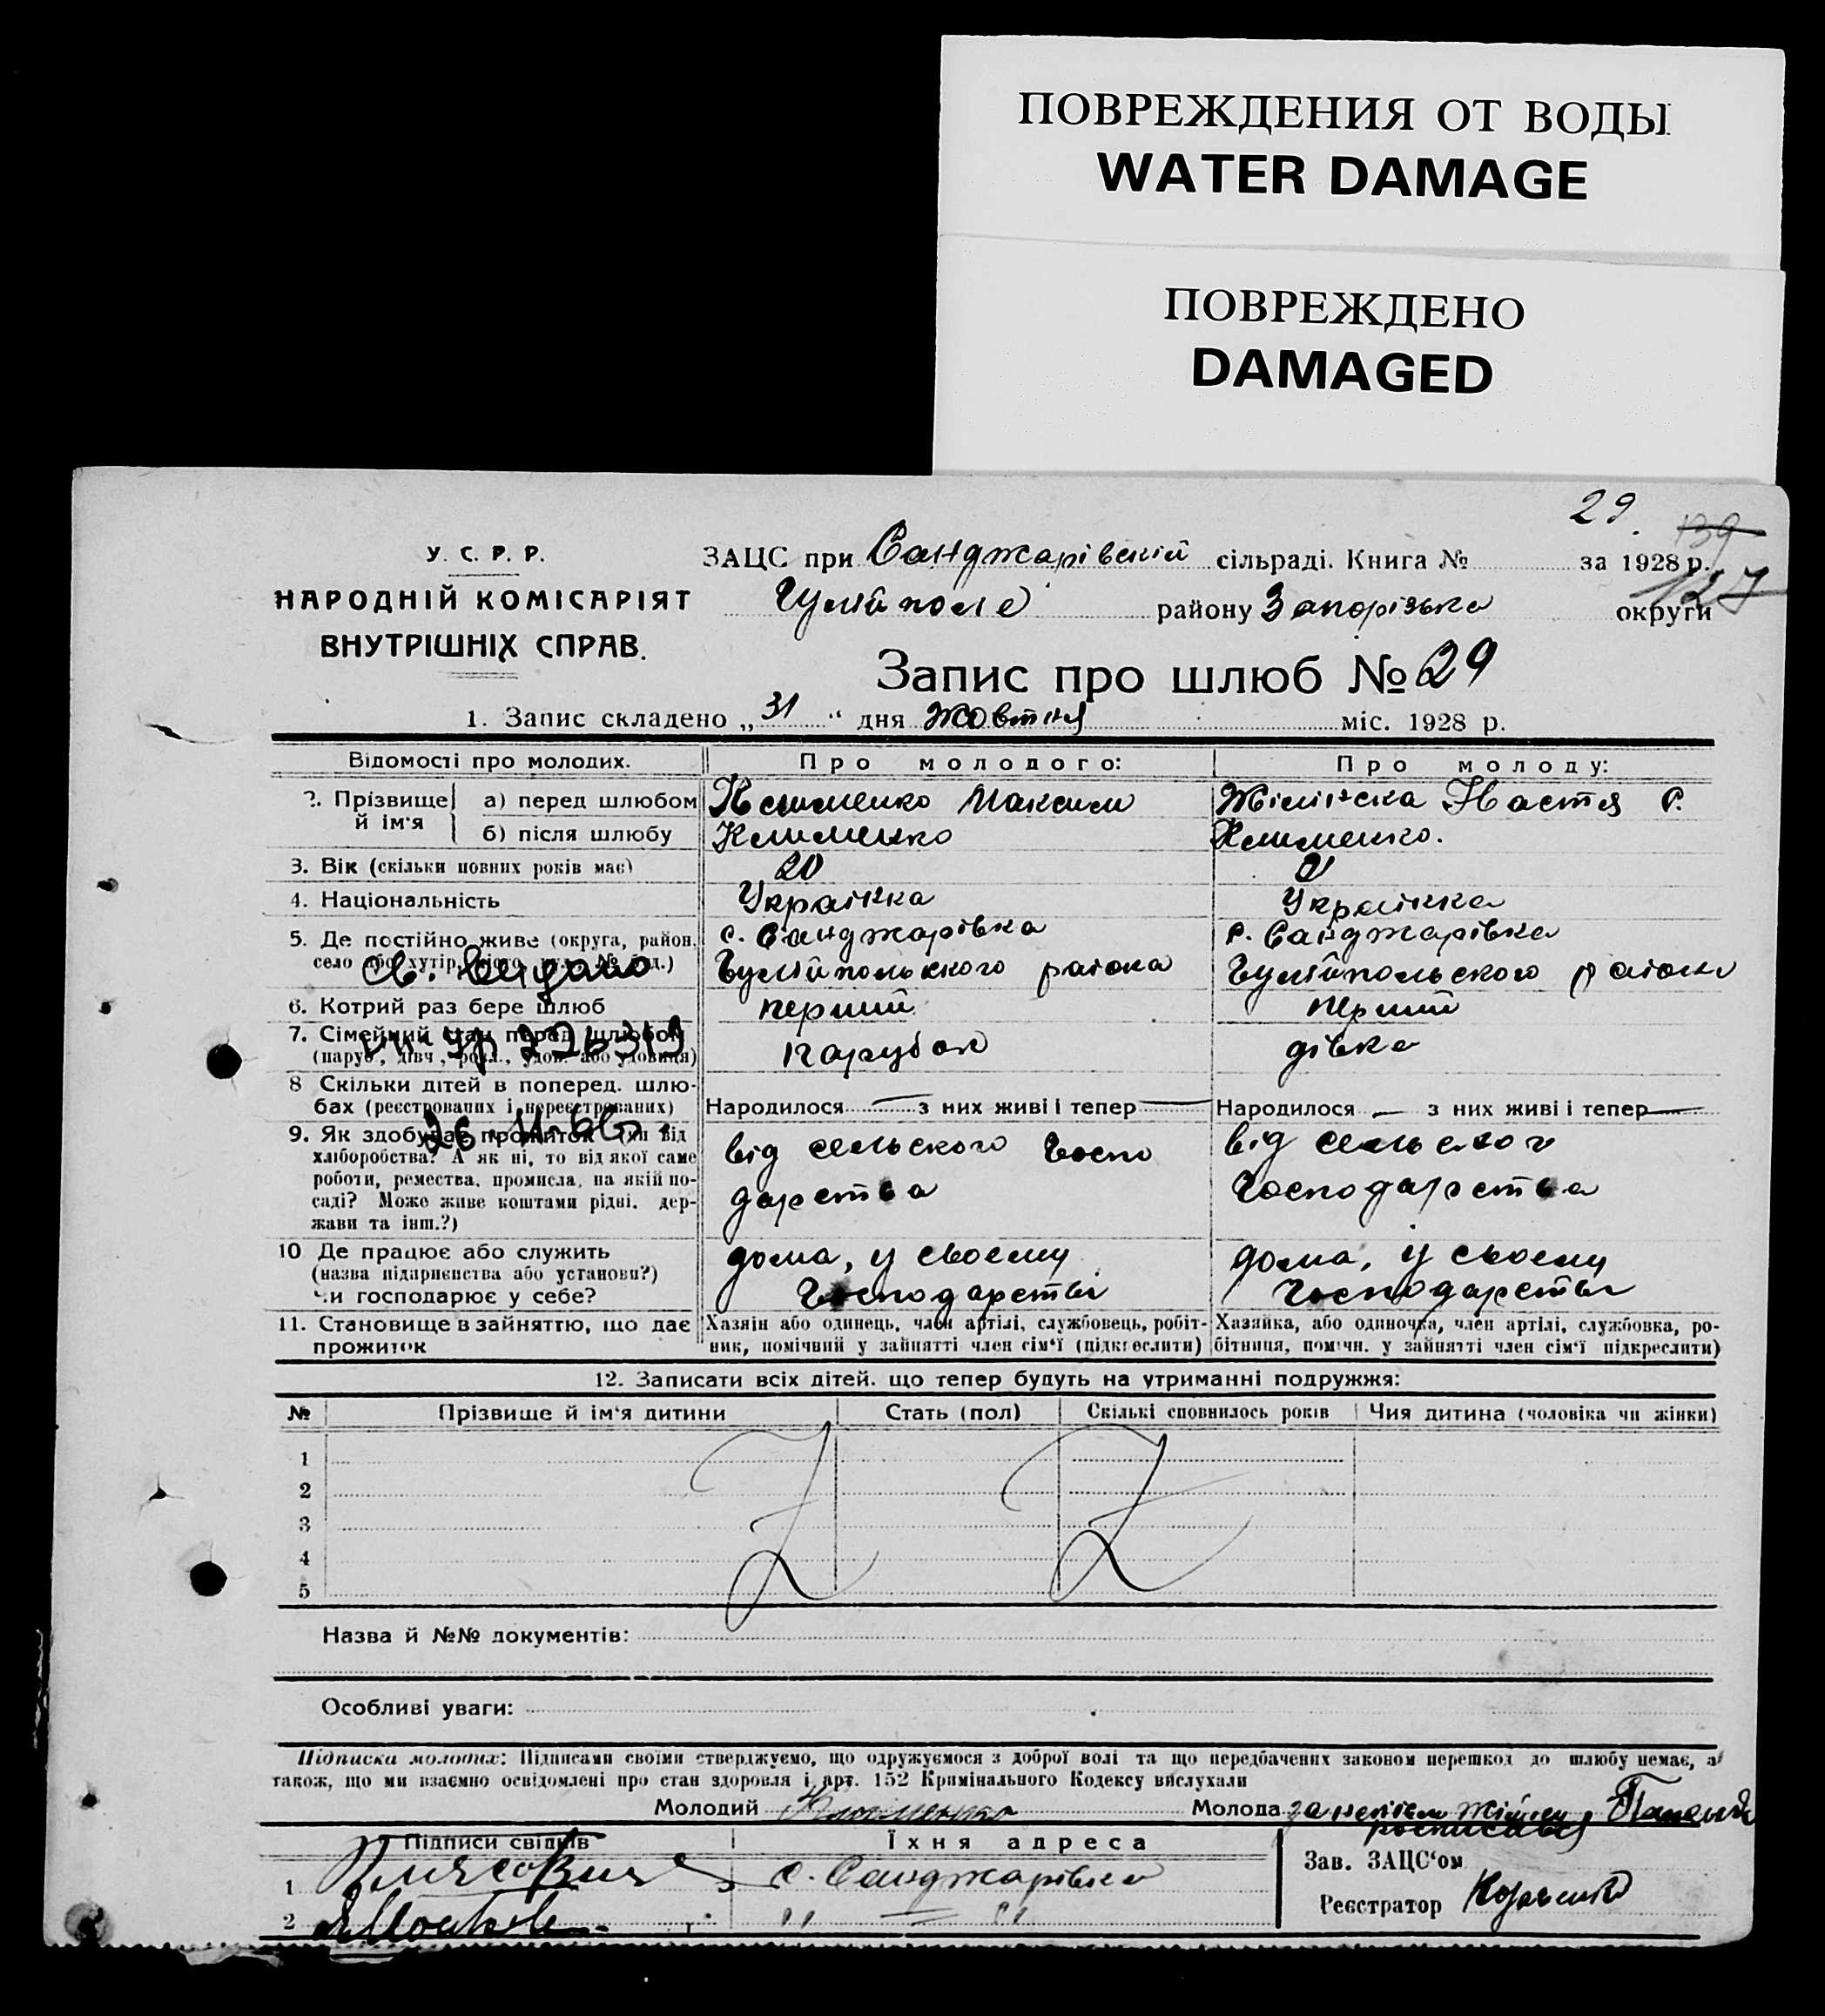 ПОВРЕЖДЕНИЯ ОТ ВОДЫ
WATER DAMAGE
ПОВРЕЖДЕНО
DAMAGED
29.
139
127
У. С. Р. Р.
НАРОДНІЙ КОМІСАРІЯТ
ВНУТРІШНІХ СПРАВ.
ЗАЦС при Санджарівській сільраді. Книга № за 1928 р.
Гуляйполе району Запорізька округи
Запис про шлюб № 29
1. Запис складено „31“ дня Жовтня міс. 1928 р.
Відомості про молодих. Про молодого: Про молоду:
2. Прізвище й ім'я а) перед шлюбом Клименко Максим Настя
б) після шлюбу Клименко Клименко.
3. Вік (скільки повних років має) 20
4. Національність Українка Українка
5. Де постійно живе (округа, район, с. Санджарівка с. Санджарівка
село або хутір, місто, вул., № буд.) Гуляйпольского района Гуляйпольского района
6. Котрий раз бере шлюб перший перший
7. Сімейний стан перед шлюбом парубок дівка
(паруб., дівч., розл., удов. або удовиця)
8 Скільки дітей в поперед. шлю-
бах (реєстрованих і нереєстрованих) Народилося — з них живі і тепер — Народилося — з них живі і тепер —
9. Як здобуває прожиток (чи від від сельского Госпо від сельског
хліборобства? А як ні, то від якої саме
роботи, ремества, промисла, на якій по- дарства Господарства
саді? Може живе коштами рідні, дер-
жави та інш.?)
26.11.66
10 Де працює або служить дома, у своему дома, у своему
(назва підприємства або установи?)
Чи господарює у себе? Господарстві Господарстві
11. Становище в зайняттю, що дає прожиток
Хазяін або одинець, член артілі, службовець, робіт-
ник, помічний у зайнятті член сім'ї (підкреслити)
Хазяйка, або одиночка, член артілі, службовка, ро-
бітниця, помічн. у зайнятті член сім'ї підкреслити)
12. Записати всіх дітей, що тепер будуть на утриманні подружжя:
№ Прізвище й ім'я дитини Стать (пол) Скількі сповнилось років Чия дитина (чоловіка чи жінки)
1
2
3
4
5
Назва й №№ документів:
Особливі уваги:
Підписка молодих: Підписами своїми стверджуємо, що одружуємося з доброї волі та що передбачених законом перешкод до шлюбу немає, а
також, що ми взаємно освідомлені про стан здоровля і арт. 152 Кримінального Кодексу вислухали
Молодий Клименко Молода
Підписи свідків Їхня адреса
1 с. Санджарівка
2 " — "
Зав. ЗАЦС'ом
Реєстратор